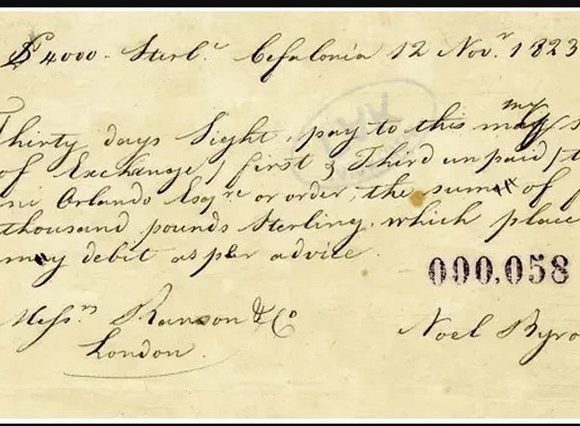 $ 4000 - Sterl.ᶜ Cefalonia 12 Nov.ʳ 1823
Thirty days Sight, pay to this my
of Exchange, first & Third unpaid,
Orlando Esqʳᵉ or order, the sum of
thousand pounds Sterling, which place
may debit as per advice.
090,058
Messʳˢ Ransom & Co
Noel Byro
London.